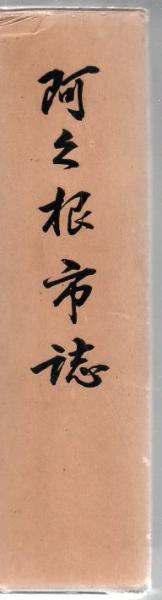 阿久根市誌